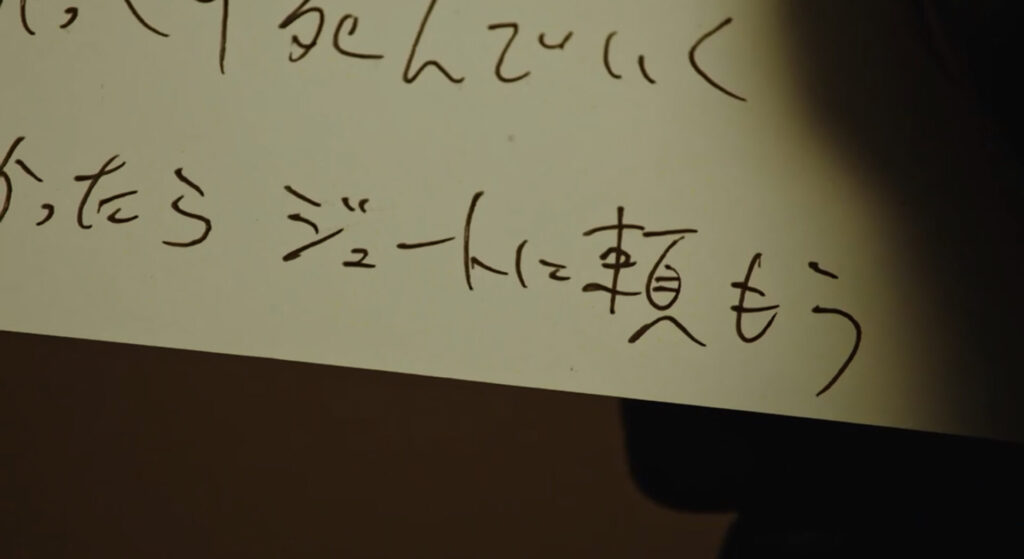 くり死んでいく
かったらジュートに頼もう